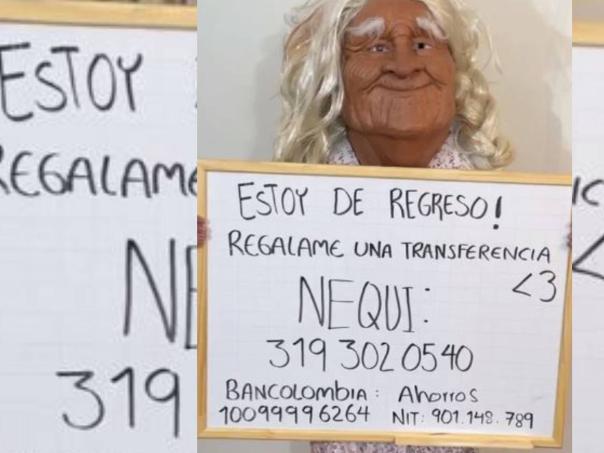 ESTOY DE REGRESO!
REGALAME UNA TRANSFERENCIA
<3
NEQUI:
319 302 0540
BANCOLOMBIA: Ahorros
10099996264 NIT: 901.148.789